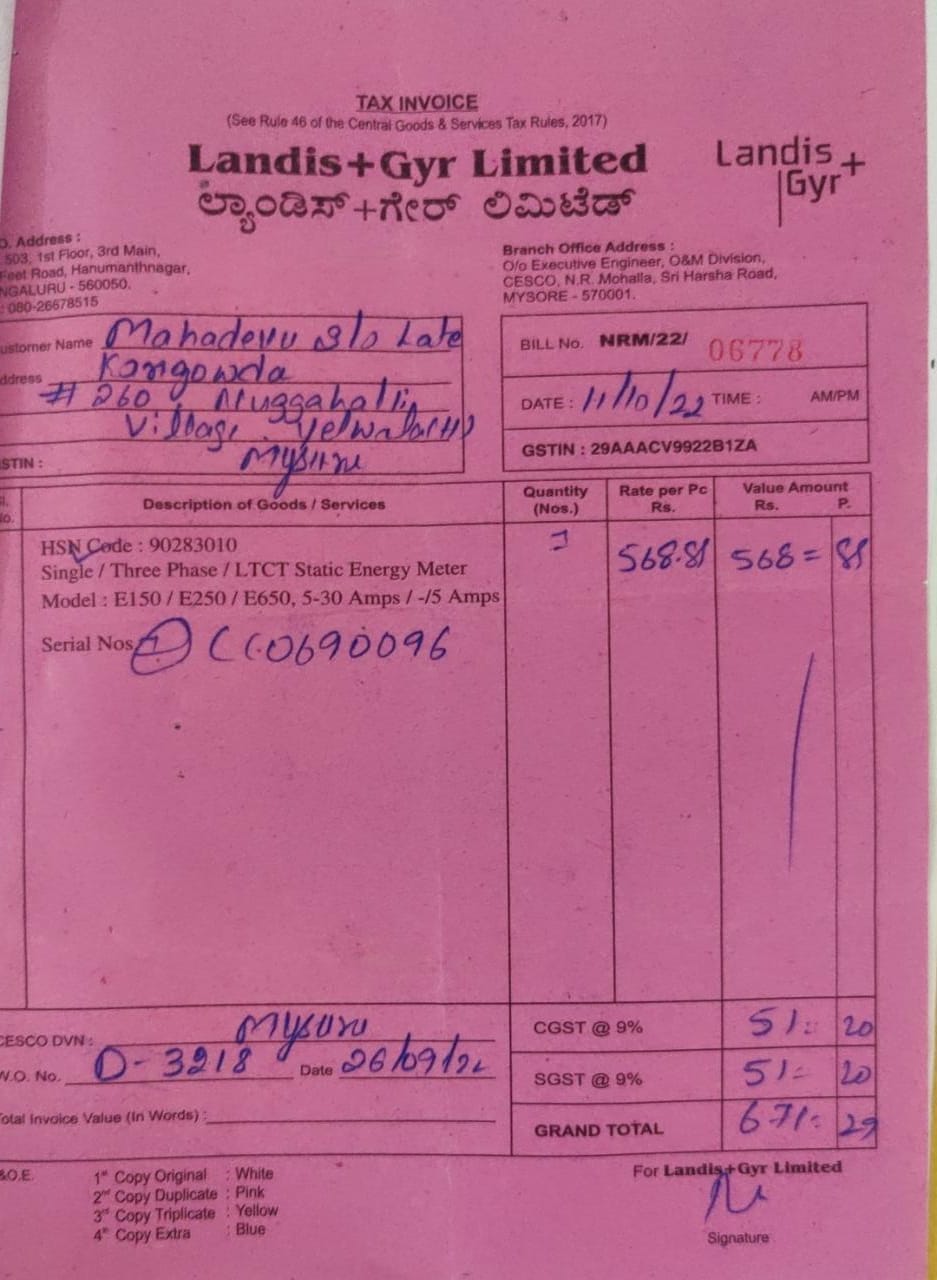 TAX INVOICE
(See Rule 46 of the Central Goods & Services Tax Rules, 2017)
Landis+Gyr Limited
ಲ್ಯಾಂಡಿಸ್+ಗೇರ್ ಲಿಮಿಟೆಡ್
Landis
Gyr+
O. Address :
503, 1st Floor, 3rd Main,
Feet Road, Hanumanthnagar,
NGALURU - 560050.
: 080-26678515
Branch Office Address :
O/o Executive Engineer, O&M Division,
CESCO, N.R. Mohalla, Sri Harsha Road,
MYSORE - 570001.
ustomer Name Mahadevu S/o Late
ddress Kongowda
# 260, Nuggahalli
Village
Mysuru
STIN :
BILL No. NRM/22/ 06778
DATE : 11/10/22 TIME : AM/PM
GSTIN : 29AAACV9922B1ZA
l. No. Description of Goods / Services Quantity (Nos.) Rate per Pc Rs. Value Amount Rs. P.
HSN Code : 90283010
Single / Three Phase / LTCT Static Energy Meter 568.81 568= 81
Model : E150 / E250 / E650, 5-30 Amps / -/5 Amps
Serial Nos. 0690096
CESCO DVN : Mysuru
W.O. No. D-3218 Date 26/09/22
Total Invoice Value (In Words) :
CGST @ 9% 51= 20
SGST @ 9% 51= 20
GRAND TOTAL 671= 29
&O.E.
1st Copy Original : White
2nd Copy Duplicate : Pink
3rd Copy Triplicate : Yellow
4th Copy Extra : Blue
For Landis+Gyr Limited
Signature